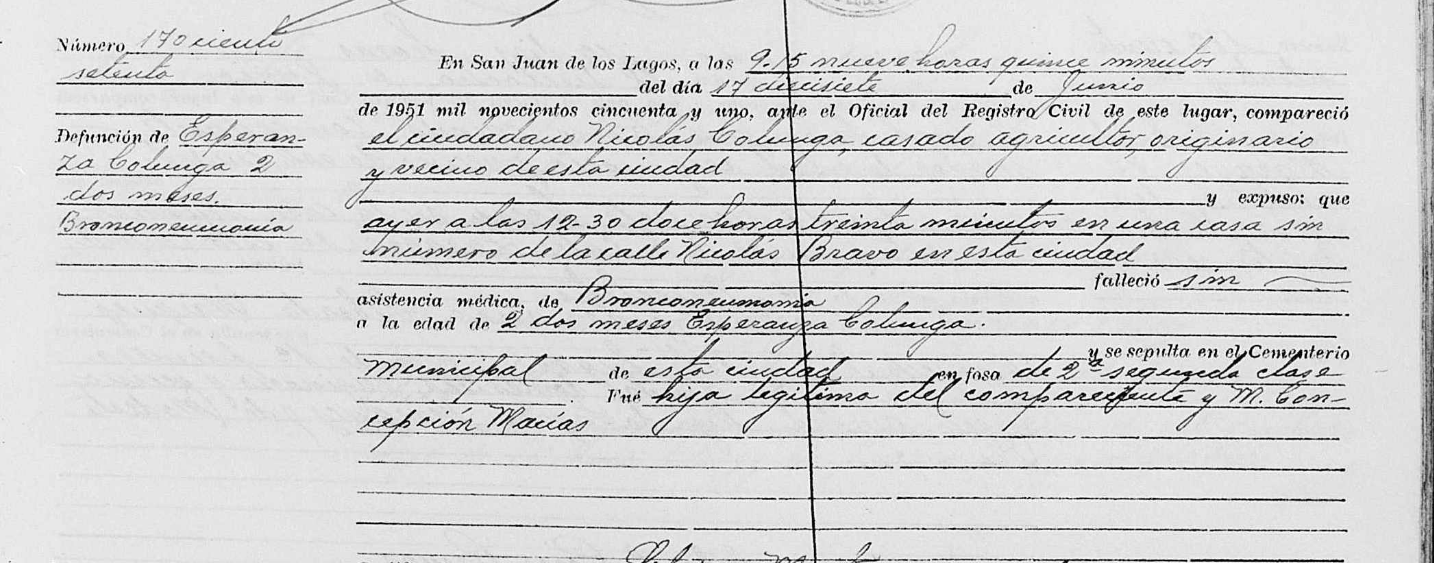 Número 170 ciento
setenta
Defunción de Esperan-
za Colunga 2
dos meses.
Bronconeumonía
En San Juan de los Lagos, a las 9.15 nueve horas quince minutos
del día 17 diecisiete de Junio
de 1951 mil novecientos cincuenta y uno, ante el Oficial del Registro Civil de este lugar, compareció
el ciudadano Nicolás Colunga casado agricultor, originario
y vecino de esta ciudad
y expuso: que
ayer a las 12-30 doce horas treinta minutos en una casa sin
número de la calle Nicolás Bravo en esta ciudad
falleció sin
asistencia médica, de Bronconeumonia
a la edad de 2 dos meses Esperanza Colunga.
y se sepulta en el Cementerio
Municipal de esta ciudad en fosa de 2ª segunda clase
Fué hija legítima del compareciente y M. Con-
cepción Macías